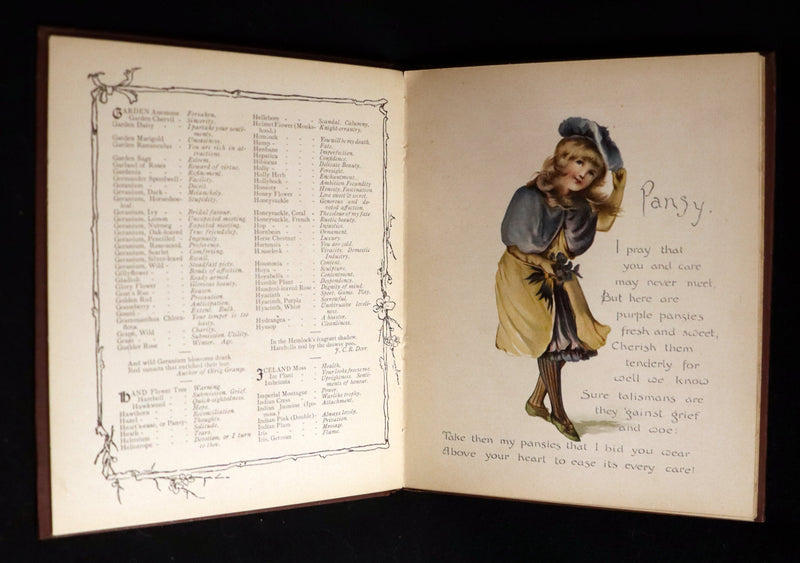 GARDEN Anemone - Forsaken.
Garden Chervil - Sincerity.
Garden Daisy - I partake your senti-
ments.
Garden Marigold - Uneasiness.
Garden Ranunculus - You are rich in at-
tractions.
Garden Sage - Esteem.
Garland of Roses - Reward of virtue.
Gardenia - Refinement.
Germander Speedwell - Facility.
Geranium - Deceit.
Geranium, Dark - Melancholy.
Geranium, Horseshoe-
leaf - Stupidity.
Geranium, Ivy - Bridal favour.
Geranium, Lemon - Unexpected meeting.
Geranium, Nutmeg - Expected meeting.
Geranium, Oak-leaved - True friendship.
Geranium, Pencilled - Ingenuity.
Geranium, Rose-scented - Preference.
Geranium, Scarlet - Comforting.
Geranium, Silver-leaved - Recall.
Geranium, Wild - Steadfast piety.
Gillyflower - Bonds of affection.
Gladioli - Ready armed.
Glory Flower - Glorious beauty.
Goat's Rue - Reason.
Golden Rod - Precaution.
Gooseberry - Anticipation.
Gourd - Extent, Bulk.
Grammanthes Chloro-
flora - Your temper is too
hasty.
Grape, Wild - Charity.
Grass - Submission. Utility.
Guelder Rose - Winter. Age.
And wild Geranium blossoms drank
Red sunsets that enriched their hue.
Author of Orig Grange.
HAND Flower Tree - Warning.
Harebell - Submission. Grief.
Hawkweed - Quick-sightedness.
Hawthorn - Hope.
Hazel - Reconciliation.
Heart's-ease, or Pansy - Thoughts.
Heath - Solitude.
Helenium - Tears.
Heliotrope - Devotion, or I turn
to thee.
Hellebore - Scandal. Calumny.
Helmet Flower (Monks-
hood) - Knight-errantry.
Hemlock - You will be my death.
Hemp - Fate.
Henbane - Imperfection.
Hepatica - Confidence.
Hibiscus - Delicate Beauty.
Holly - Foresight.
Holly Herb - Enchantment.
Hollyhock - Ambition Fecundity
Honesty - Honesty, Fascination.
Honey Flower - Love sweet & secret.
Honeysuckle - Generous and de-
voted affection.
Honeysuckle, Coral - The colour of my fate
Honeysuckle, French - Rustic beauty.
Hop - Injustice.
Hornbeam - Ornament.
Horse Chestnut - Luxury.
Hortensia - You are cold.
Houseleek - Vivacity. Domestic
Industry.
Houstonia - Content.
Hoya - Sculpture.
Hoyabella - Contentment.
Humble Plant - Despondency.
Hundred-leaved Rose - Dignity of mind.
Hyacinth - Sport. Game. Play.
Hyacinth, Purple - Sorrowful.
Hyacinth, White - Unobtrusive loveli-
ness.
Hydrangea - A boaster.
Hyssop - Cleanliness.
In the Hemlock's fragrant shadow.
Harebells nod by the drowsy pool.
ICELAND Moss - Health.
Ice Plant - Your looks freeze me.
Imbricata - Uprightness. Senti-
ments of honour.
Imperial Montague - Power.
Indian Cress - Warlike trophy.
Indian Jasmine (Ipo-
mœa) - Attachment.
Indian Pink (Double) - Always lovely.
Indian Plum - Privation.
Iris - Message.
Iris, German - Flame.
Pansy.
I pray that
you and care
may never meet,
But here are
purple pansies
fresh and sweet,
Cherish them
tenderly for
well we know
Sure talismans are
they 'gainst grief
and woe:
Take then my pansies that I bid you wear
Above your heart to ease its every care!